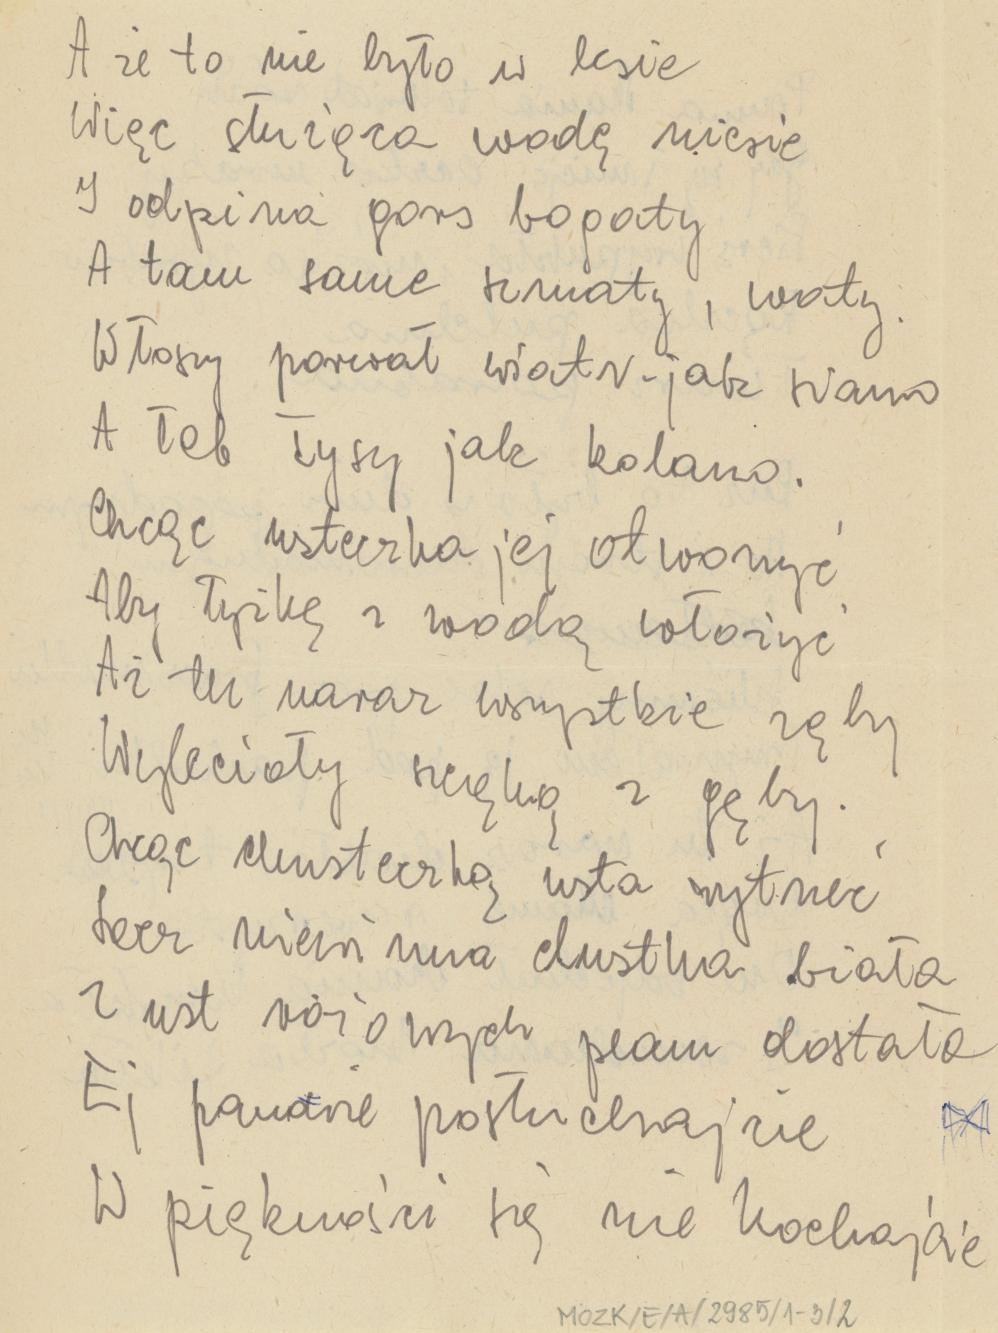 A że to nie było w lesie
Więc służąca wodę niesie
I odpina gors bogaty
A tam same szmaty, waty.
Włosy porwał wiatr-jak siano
A łeb łysy jak kolano.
Chcąc usteczka jej otworzyć
Aby łyżkę z wodą włożyć
Aż tu naraz wszystkie zęby
Wyleciały szczęką z gęby.
Chcąc chusteczką usta wytrzeć
Lecz niewinna chustka biała
Z ust różowych plam dostała
Ej panowie posłuchajcie
W piękności się nie kochajcie
MOZK/E/A/2985/1-3/2